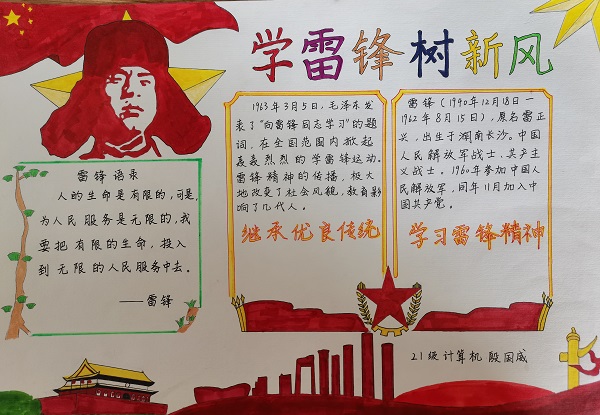 学雷锋树新风
雷锋语录
人的生命是有限的,可是,
为人民服务是无限的,我
要把有限的生命,投入
到无限的人民服务中去。
——雷锋
1963年3月5日,毛泽东发
表了“向雷锋同志学习”的题
词,在全国范围内掀起
轰轰烈烈的学雷锋运动。
雷锋精神的传播,极大
地改变了社会风貌,教育影
响了几代人。
继承优良传统
雷锋(1990年12月18日—
1962年8月15日),原名雷正
兴,出生于湖南长沙。中国
人民解放军战士,共产主
义战士。1960年参加中国人
民解放军,同年11月加入中
国共产党。
学习雷锋精神
21级计算机 殷国威